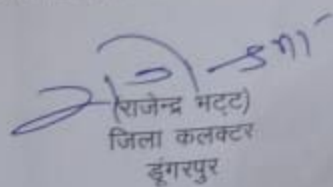 (राजेन्द्र भट्ट)
जिला कलक्टर
डूंगरपुर